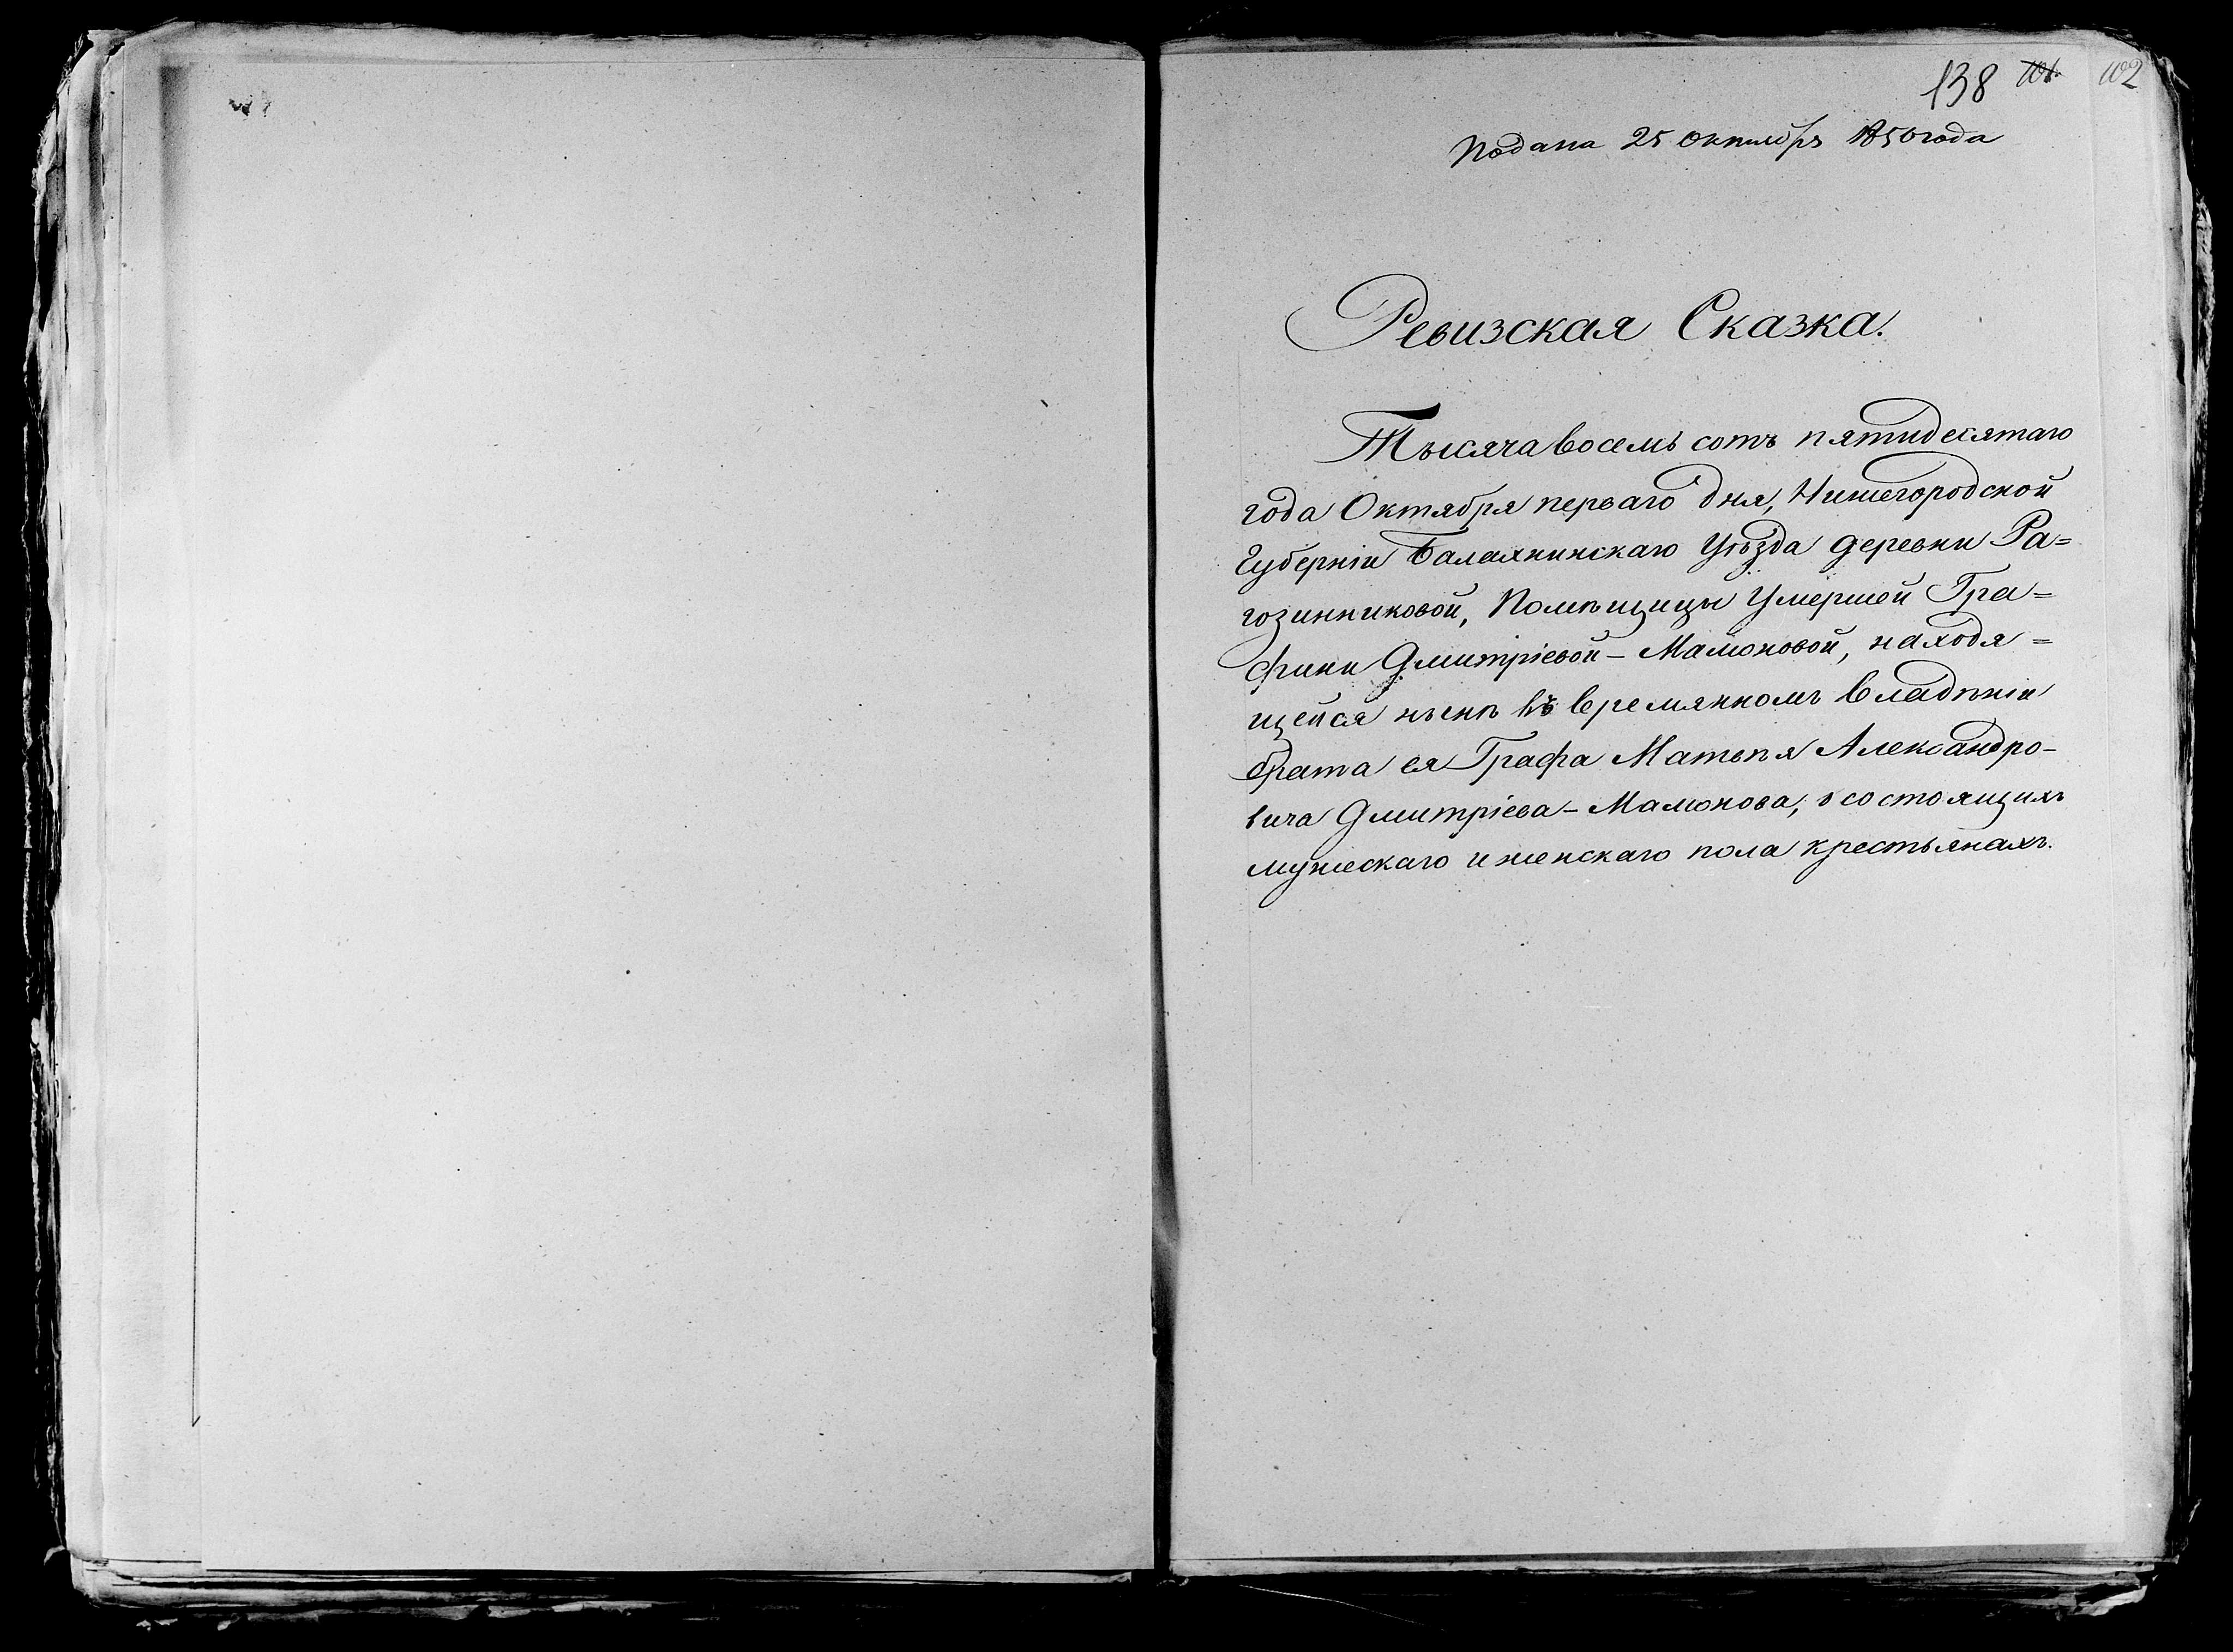 138 101 102
Подана 25 октября 1850 года
Ревизская Сказка.
Тысяча восемь сотъ пятидесятаго
года Октября перваго дня, Нижегородской
Губерніи Балахнинскаго Уѣзда деревни Ра=
гозинниковой, Помѣщицы Умершей Гра=
фини Дмитріевой-Мамоновой, находя=
щейся нынѣ въ времянномъ владѣніи
брата ея Графа Матвѣя Александро-
вича Дмитріева-Мамонова; о состоящихъ
мужескаго и женскаго пола крестьянахъ.